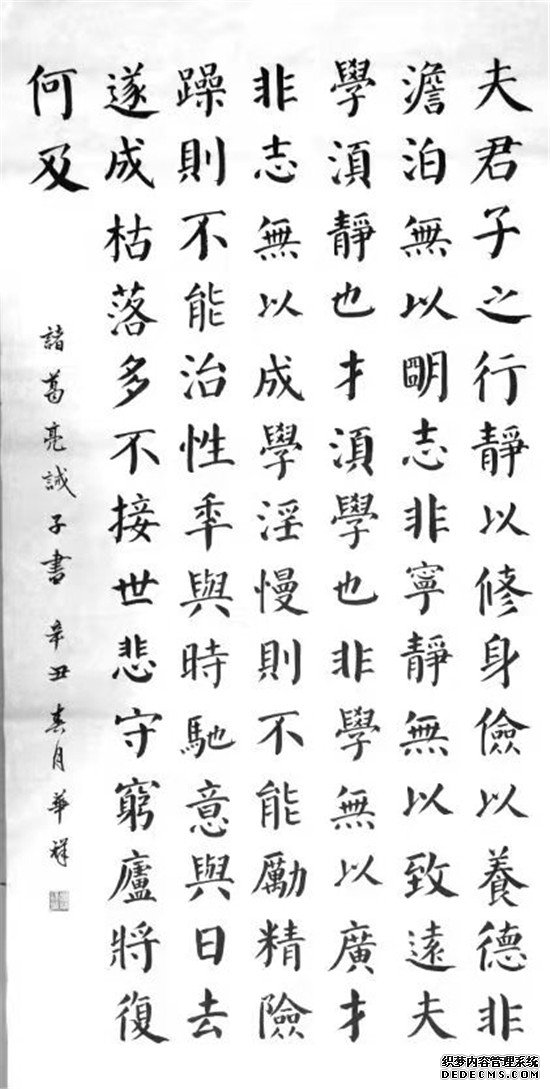 夫君子之行靜以修身儉以養德非
澹泊無以明志非寧靜無以致遠夫
學須靜也才須學也非學無以廣才
非志無以成學淫慢則不能勵精險
躁則不能治性年與時馳意與日去
遂成枯落多不接世悲守窮廬將復
何及
諸葛亮誡子書 辛丑春月華祥
织梦内容管理系统
DEDECMS.COM